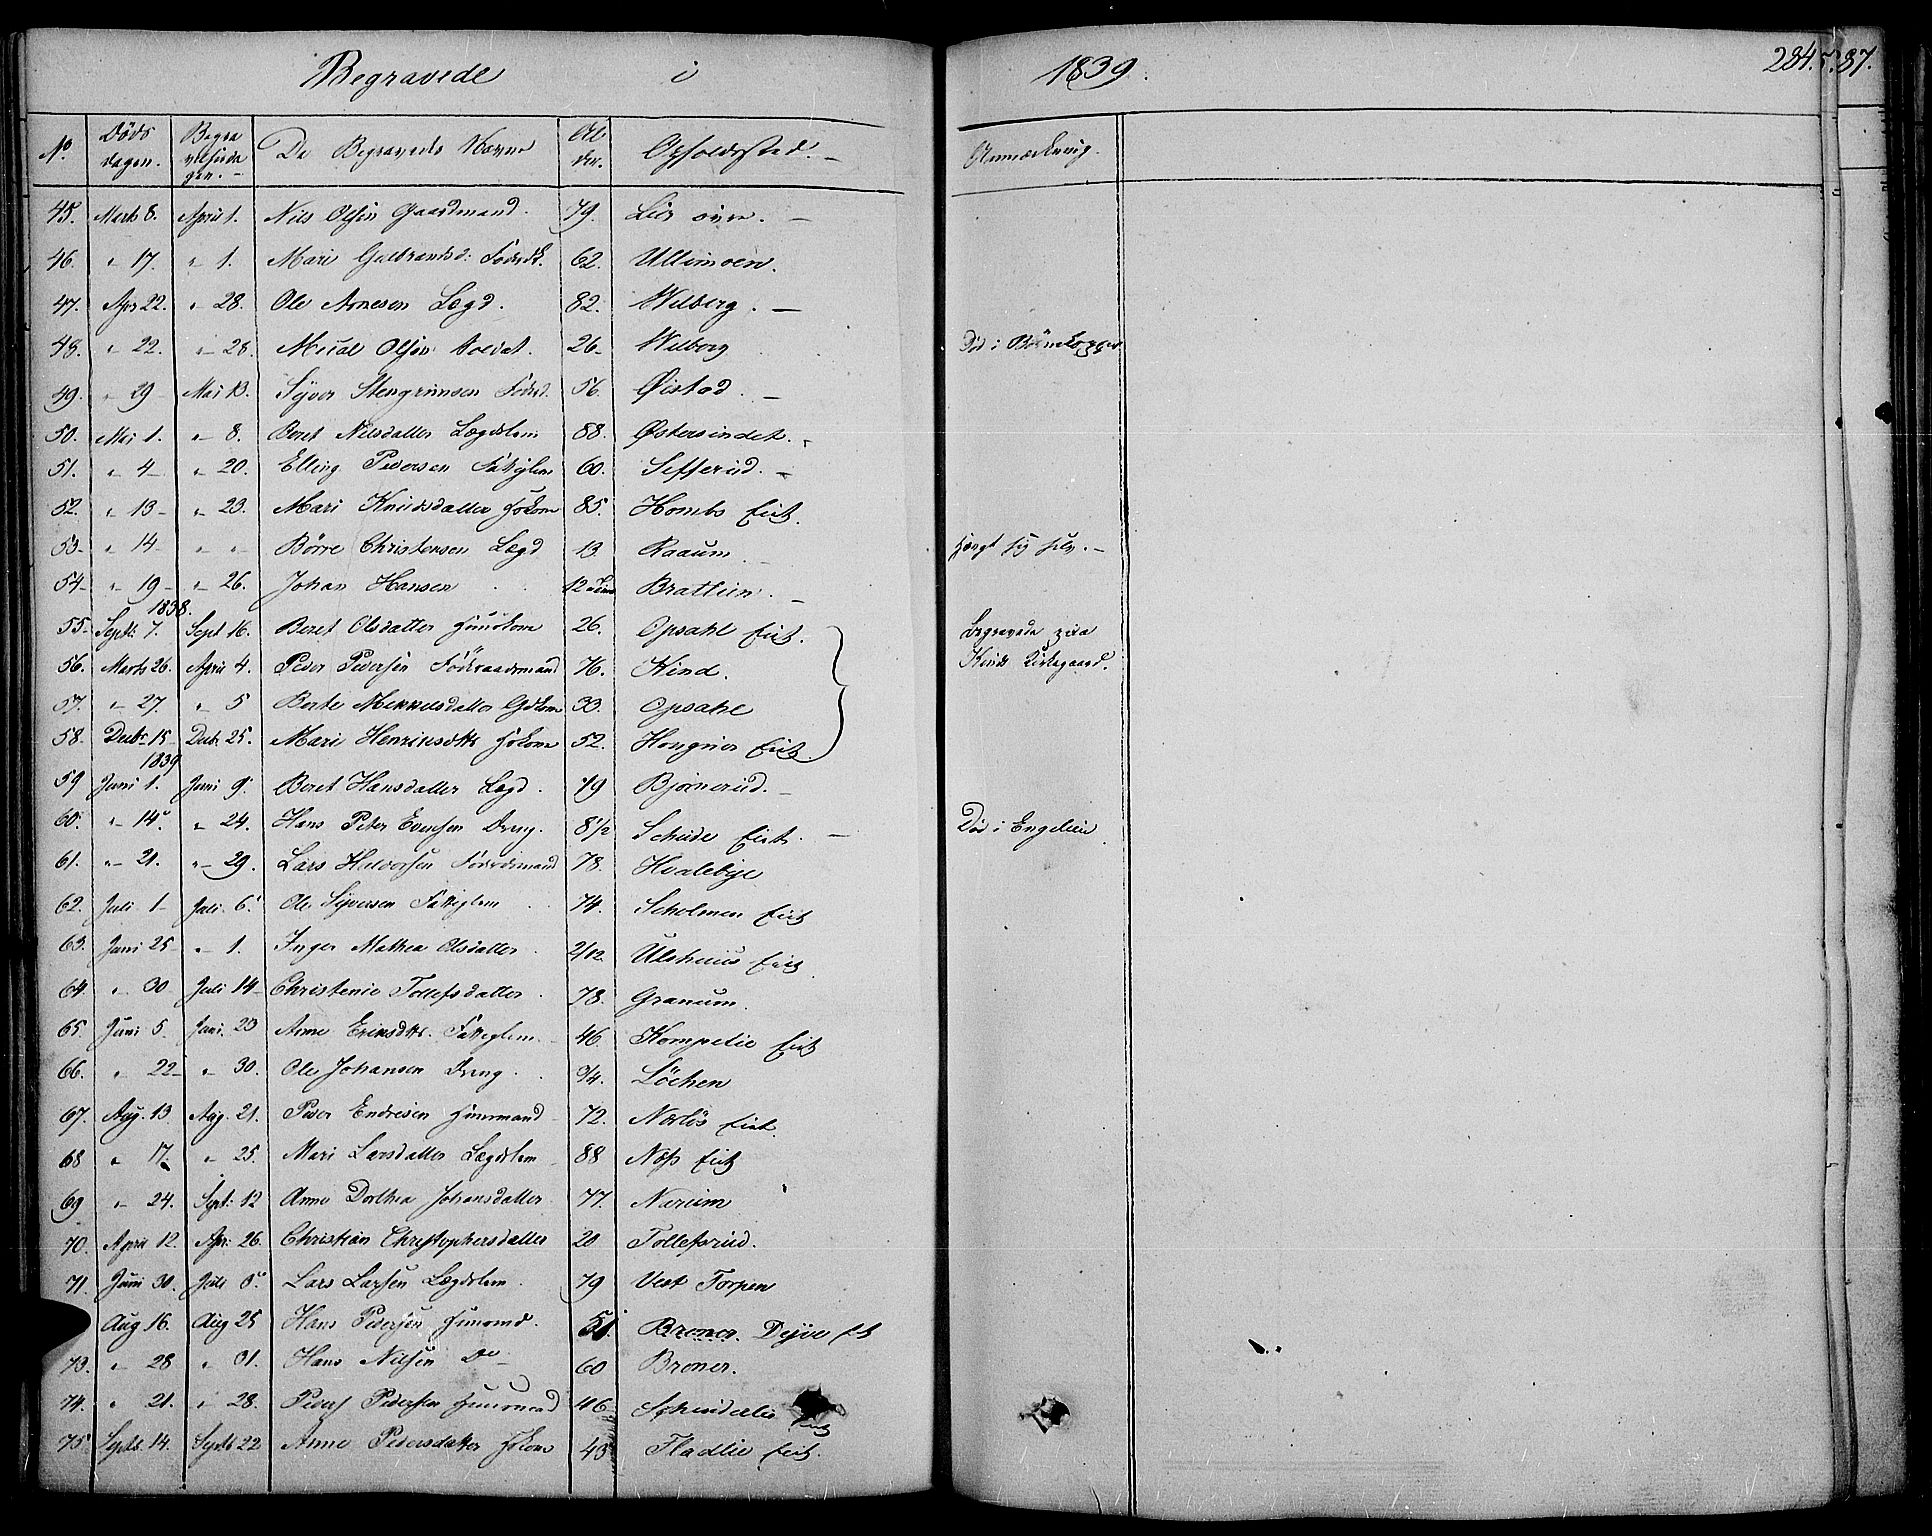 Begravede i 1839. 284. 87.
No. Døds dagen. Begravelsesdagen. De Begravedes Navne Alder. Opholdssted. Anmærkning.
45. Marts 8. April 1. Nils Olsen Gaardmand. 79. Lier øvre.
46. " 17. " 1. Mari Gulbrandsd: Føderdk. 62. Ullimoen.
47. Apr 22. " 28. Ole Arnesen Lægd. 82. Wilberg.
48. " 22. " 28. Olsen Soldat. 26 Wilberg Død i
49. " 29 Mai 13. Syver Stengrimsen Føderd. 56. Øistad.
50. Mai 1. " 8. Beret Nilsdatter Lægdslem 88. Østersindet.
51. " 4 " 20. Elling Pedersen Fattiglem 60. Sefferud.
52. " 13 " 23. Mari Knudsdatter 85. Hombs Eiet.
53 " 14 " " Børre Christensen Lægd 13. Raaum. Hængt sig selv.
54 " 19 " 26. Johan Hansen 12 Brattlien.
1838.
55 Septb: 7. Sept 16. Beret Olsdatter Huuskone 26. Opsahl Eiet. Begravede paa
56. Marts 26. April 4. Peder Pedersen Föderaadsmand 76. Hind. Kirkegaard.
57. " 27. " 5 Berte Mekkelsdatter Gdkone 33. Opsahl
58. Decbr 15 Decb. 25. Mari Henriksdtr 52. Hongner Eiet
1839
59 Juni 1. Juni 9. Beret Hansdatter Lægd. 79 Bjørnerud.
60. " 14. " 24. Hans Peter Evensen Dreng. 8 1/2 Schude Eiet. Død i Englien
61. " 21. " 29. Lars Halvorsen Föderdsmand 78. Hvalebye
62. Juli 1 Juli 6. Ole Syversen Fattiglem 74. Scholmen Eiet
63. Juni 25 " 1. Inger Mathea Olsdatter. 2/12 Ulshuus Eiet
64. " 30 Juli 14 Christenie Tollefsdatter. 78. Granum.
65. Juni 5. Juni. 23 Anne Eriksdtr. Fattiglem. 46. Kompelie Eiet
66. " 22 " 30. Ole Johansen Dreng. 3/4. Löchen
67. Aug. 13 Aug. 21. Peder Endresen Huusmand 72. Nærlös Eiet.
68 " 17. " 25. Mari Larsdatter Lægdslem 88 Næss Eiet
69 " 24. Sept: 12 Anne Dorthea Johansdatter. 77. Narum
70. April 12. Apr: 26. Christian Christophersdatter 20 Tollefsrud.
71. Juni 30. Juli Lars Larsen Lægdslem. 79 Vest Torpen
Aug 16. Aug 25 Hans Pedersen Huusmd. 51. Broner. Eiet
73. " 28 " 31. Hans Nilsen Do 60 Broner.
74. " 21. " 28. Peder Pedersen Huusmand 46 Schinderlie Eiet
75. Septb. 14. Septb 22 Anne Pedersdatter 43 Fladlie Eiet.